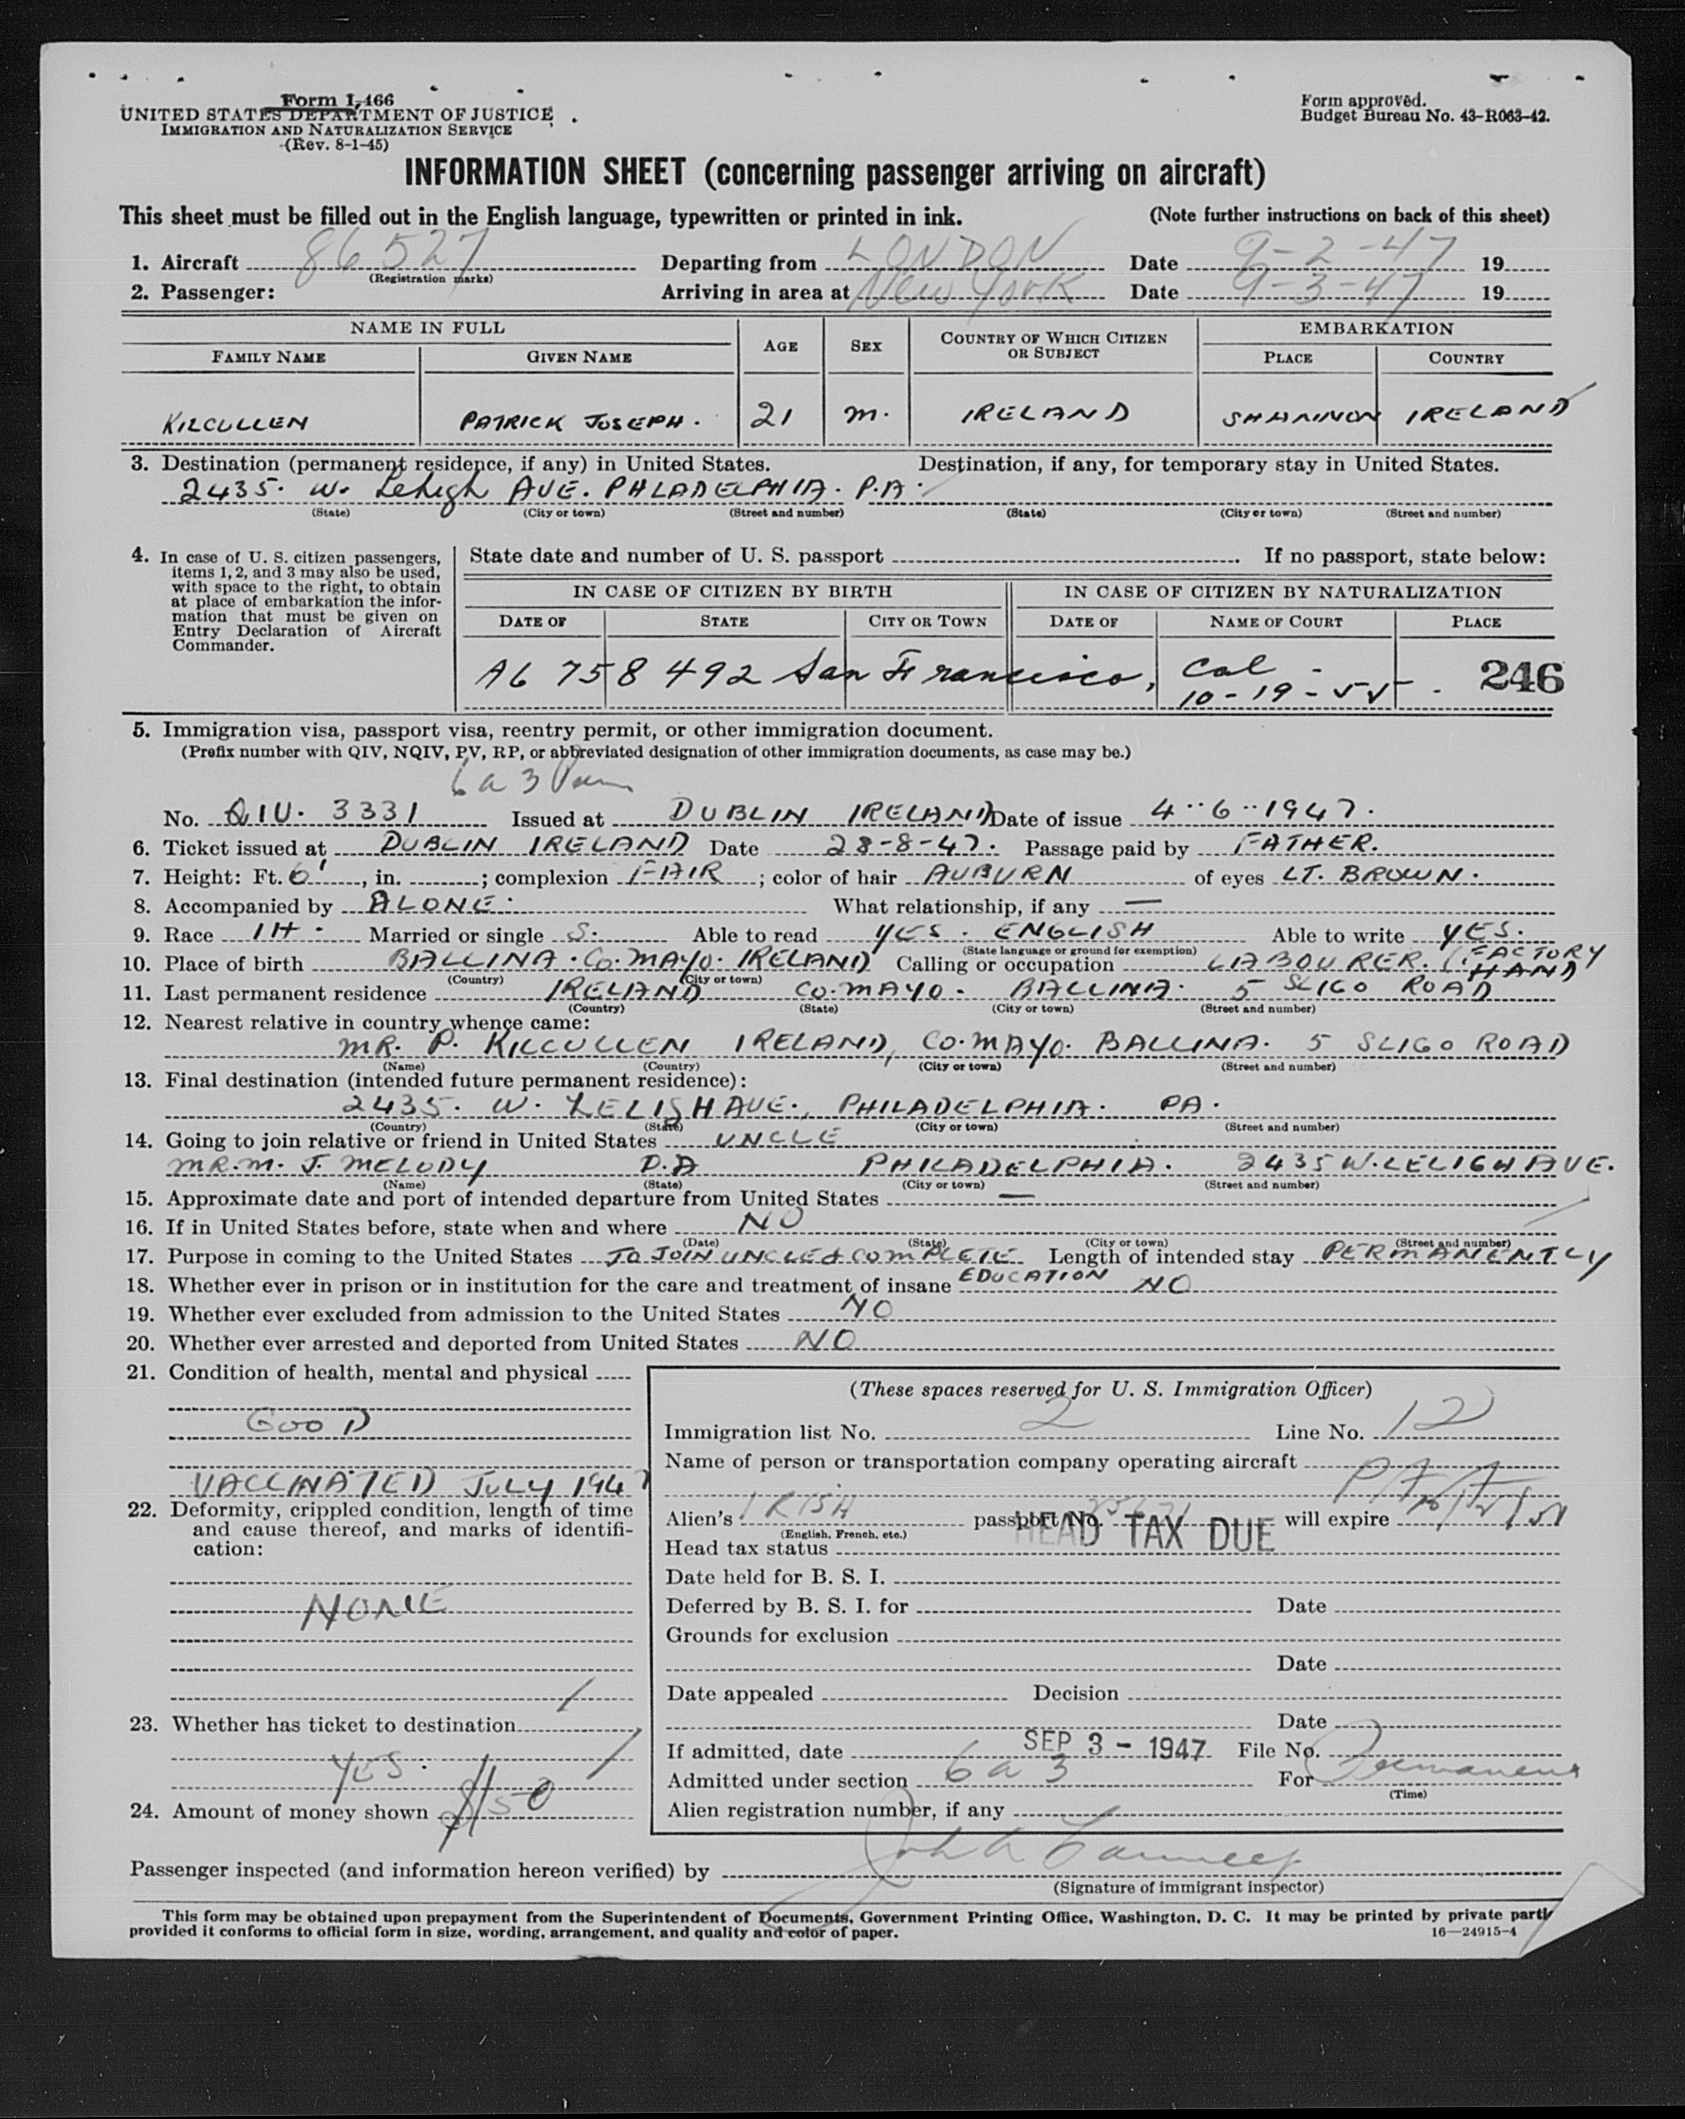 Form I-466
UNITED STATES DEPARTMENT OF JUSTICE
IMMIGRATION AND NATURALIZATION SERVICE
(Rev. 8-1-45)
Form approved.
Budget Bureau No. 43-R063-42.
INFORMATION SHEET (concerning passenger arriving on aircraft)
This sheet must be filled out in the English language, typewritten or printed in ink. (Note further instructions on back of this sheet)
1. Aircraft 86527 Departing from LONDON Date 9-2-47 19
(Registration marks)
2. Passenger: Arriving in area at New York Date 9-3-47 19
NAME IN FULL AGE SEX COUNTRY OF WHICH CITIZEN OR SUBJECT EMBARKATION
FAMILY NAME GIVEN NAME PLACE COUNTRY
KILCULLEN PATRICK JOSEPH. 21 M. IRELAND SHANNON IRELAND
3. Destination (permanent residence, if any) in United States. Destination, if any, for temporary stay in United States.
2435. W. Lehigh AVE. PHLADELPHIA. P.A.
(State) (City or town) (Street and number) (State) (City or town) (Street and number)
4. In case of U. S. citizen passengers, items 1, 2, and 3 may also be used, with space to the right, to obtain at place of embarkation the information that must be given on Entry Declaration of Aircraft Commander.
State date and number of U. S. passport . If no passport, state below:
IN CASE OF CITIZEN BY BIRTH IN CASE OF CITIZEN BY NATURALIZATION
DATE OF STATE CITY OR TOWN DATE OF NAME OF COURT PLACE
A6 758 492 San Francisco, Cal - 246
10-19-55.
5. Immigration visa, passport visa, reentry permit, or other immigration document.
(Prefix number with QIV, NQIV, PV, RP, or abbreviated designation of other immigration documents, as case may be.)
6 a 3 Per
No. QIV. 3331 Issued at DUBLIN IRELAND Date of issue 4··6··1947.
6. Ticket issued at DUBLIN IRELAND Date 28-8-47. Passage paid by FATHER.
7. Height: Ft. 6', in. ; complexion FAIR ; color of hair AUBURN of eyes LT. BROWN.
8. Accompanied by ALONE. What relationship, if any —
9. Race IH. Married or single S. Able to read YES. ENGLISH Able to write YES.
(State language or ground for exemption)
10. Place of birth BALLINA. CO. MAYO. IRELAND Calling or occupation LABOURER. (FACTORY HAND
(Country) (City or town)
11. Last permanent residence IRELAND CO. MAYO. BALLINA. 5 SLIGO ROAD
(Country) (State) (City or town) (Street and number)
12. Nearest relative in country whence came:
MR. P. KILCULLEN IRELAND, CO. MAYO. BALLINA. 5 SLIGO ROAD
(Name) (Country) (City or town) (Street and number)
13. Final destination (intended future permanent residence):
2435. W. LELISH AVE., PHILADELPHIA. PA.
(Country) (State) (City or town) (Street and number)
14. Going to join relative or friend in United States UNCLE
MR. M. J. MELODY P.A PHILADELPHIA. 2435 W. LELIGH AVE.
(Name) (State) (City or town) (Street and number)
15. Approximate date and port of intended departure from United States —
16. If in United States before, state when and where NO
(Date) (State) (City or town) (Street and number)
17. Purpose in coming to the United States TO JOIN UNCLE & COMPLETE Length of intended stay PERMANENTLY
EDUCATION
18. Whether ever in prison or in institution for the care and treatment of insane NO
19. Whether ever excluded from admission to the United States NO
20. Whether ever arrested and deported from United States NO
21. Condition of health, mental and physical
GOOD
VACCINATED JULY 1947
22. Deformity, crippled condition, length of time and cause thereof, and marks of identification:
NONE
23. Whether has ticket to destination
YES.
24. Amount of money shown $150
(These spaces reserved for U. S. Immigration Officer)
Immigration list No. 2 Line No. 12
Name of person or transportation company operating aircraft
PAA
Alien's IRISH passport No. will expire
(English, French, etc.)
Head tax status HEAD TAX DUE
Date held for B. S. I.
Deferred by B. S. I. for Date
Grounds for exclusion
Date
Date appealed Decision
Date
If admitted, date SEP 3 - 1947 File No.
Admitted under section 6 a 3 For Permanent
(Time)
Alien registration number, if any
Passenger inspected (and information hereon verified) by
(Signature of immigrant inspector)
This form may be obtained upon prepayment from the Superintendent of Documents, Government Printing Office, Washington, D. C. It may be printed by private parti
provided it conforms to official form in size, wording, arrangement, and quality and color of paper. 16—24915-4